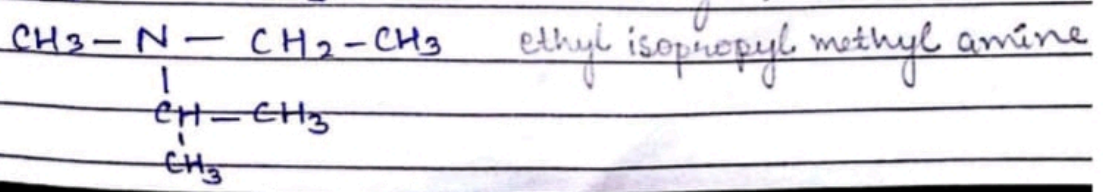 CH3-N-CH2-CH3 ethyl isopropyl methyl amine
CH-CH3
CH3